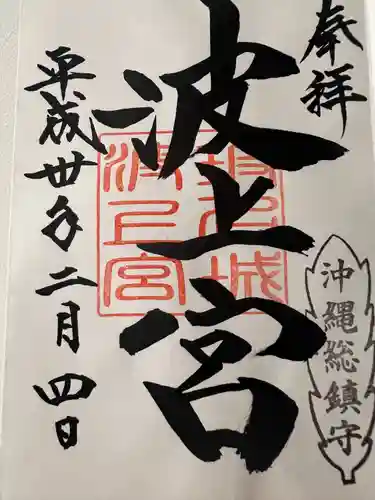 奉拝
沖縄総鎮守
波上宮
波上宮
平成卅一年二月四日